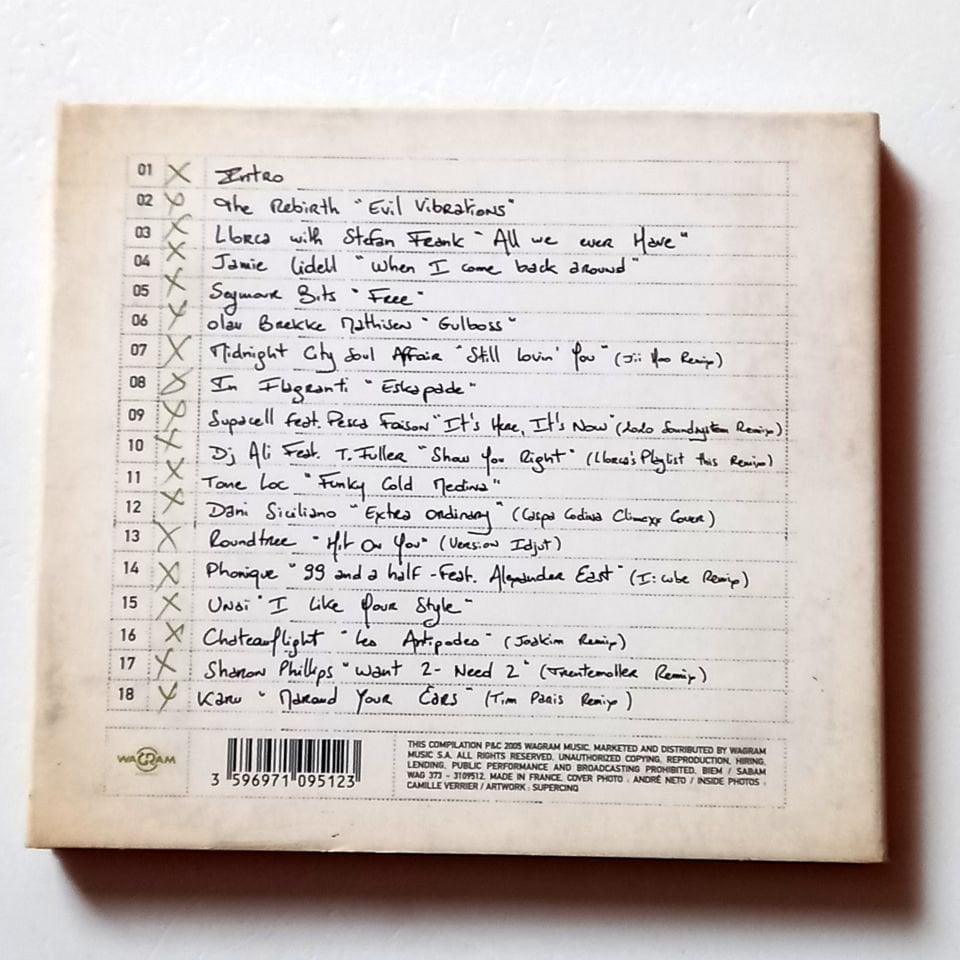 01 X Intro
02 X The Rebirth "Evil Vibrations"
03 X Llorca with Stefan Frank "All we ever Have"
04 X Jamie Lidell "When I come back around"
05 X Seymour Bits "Free"
06 X Olav Brekke Mathisen "Gulboss"
07 X Midnight City Soul Affair "Still Lovin' You" (Jii Hoo Remix)
08 X In Flagranti "Eskapade"
09 X Supacell feat. Pesca Faison "It's Here, It's Now" (Lolo Soundsystem Remix)
10 X Dj Ali Feat. T. Fuller "Show You Right" (Llorca's Playlist this Remix)
11 X Tone Loc "Funky Cold Medina"
12 X Dani Siciliano "Extra Ordinary" (Caspa Codina Climaxx Cover)
13 X Roundtree "Hit On You" (Version Idjut)
14 X Phonique "99 and a half - Feat. Alexander East" (I:cube Remix)
15 X Unai "I Like Your Style"
16 X Chateauflight "Les Antipodes" (Joakim Remix)
17 X Sharon Phillips "Want 2 - Need 2" (Trentemoller Remix)
18 X Karu "Around Your Ears" (Tim Paris Remix)
WAGRAM
3 596971 095123
THIS COMPILATION P&C 2005 WAGRAM MUSIC. MARKETED AND DISTRIBUTED BY WAGRAM
MUSIC S.A. ALL RIGHTS RESERVED. UNAUTHORIZED COPYING, REPRODUCTION, HIRING,
LENDING, PUBLIC PERFORMANCE AND BROADCASTING PROHIBITED. BIEM / SABAM
WAG 373 - 3109512. MADE IN FRANCE. COVER PHOTO : ANDRÉ NETO / INSIDE PHOTOS :
CAMILLE VERRIER / ARTWORK : SUPERCINQ